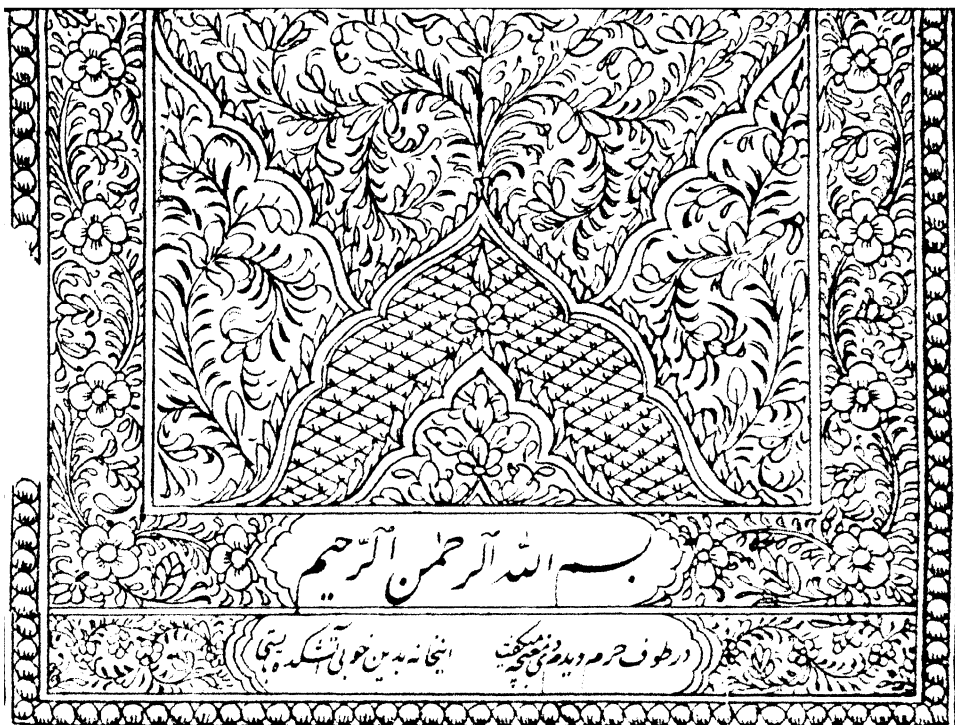 بسم الله الرحمن الرحیم
در طوف حرم دیدم دی مغبچه میگفت این خانه بدین خوبی آتشکده بایستی